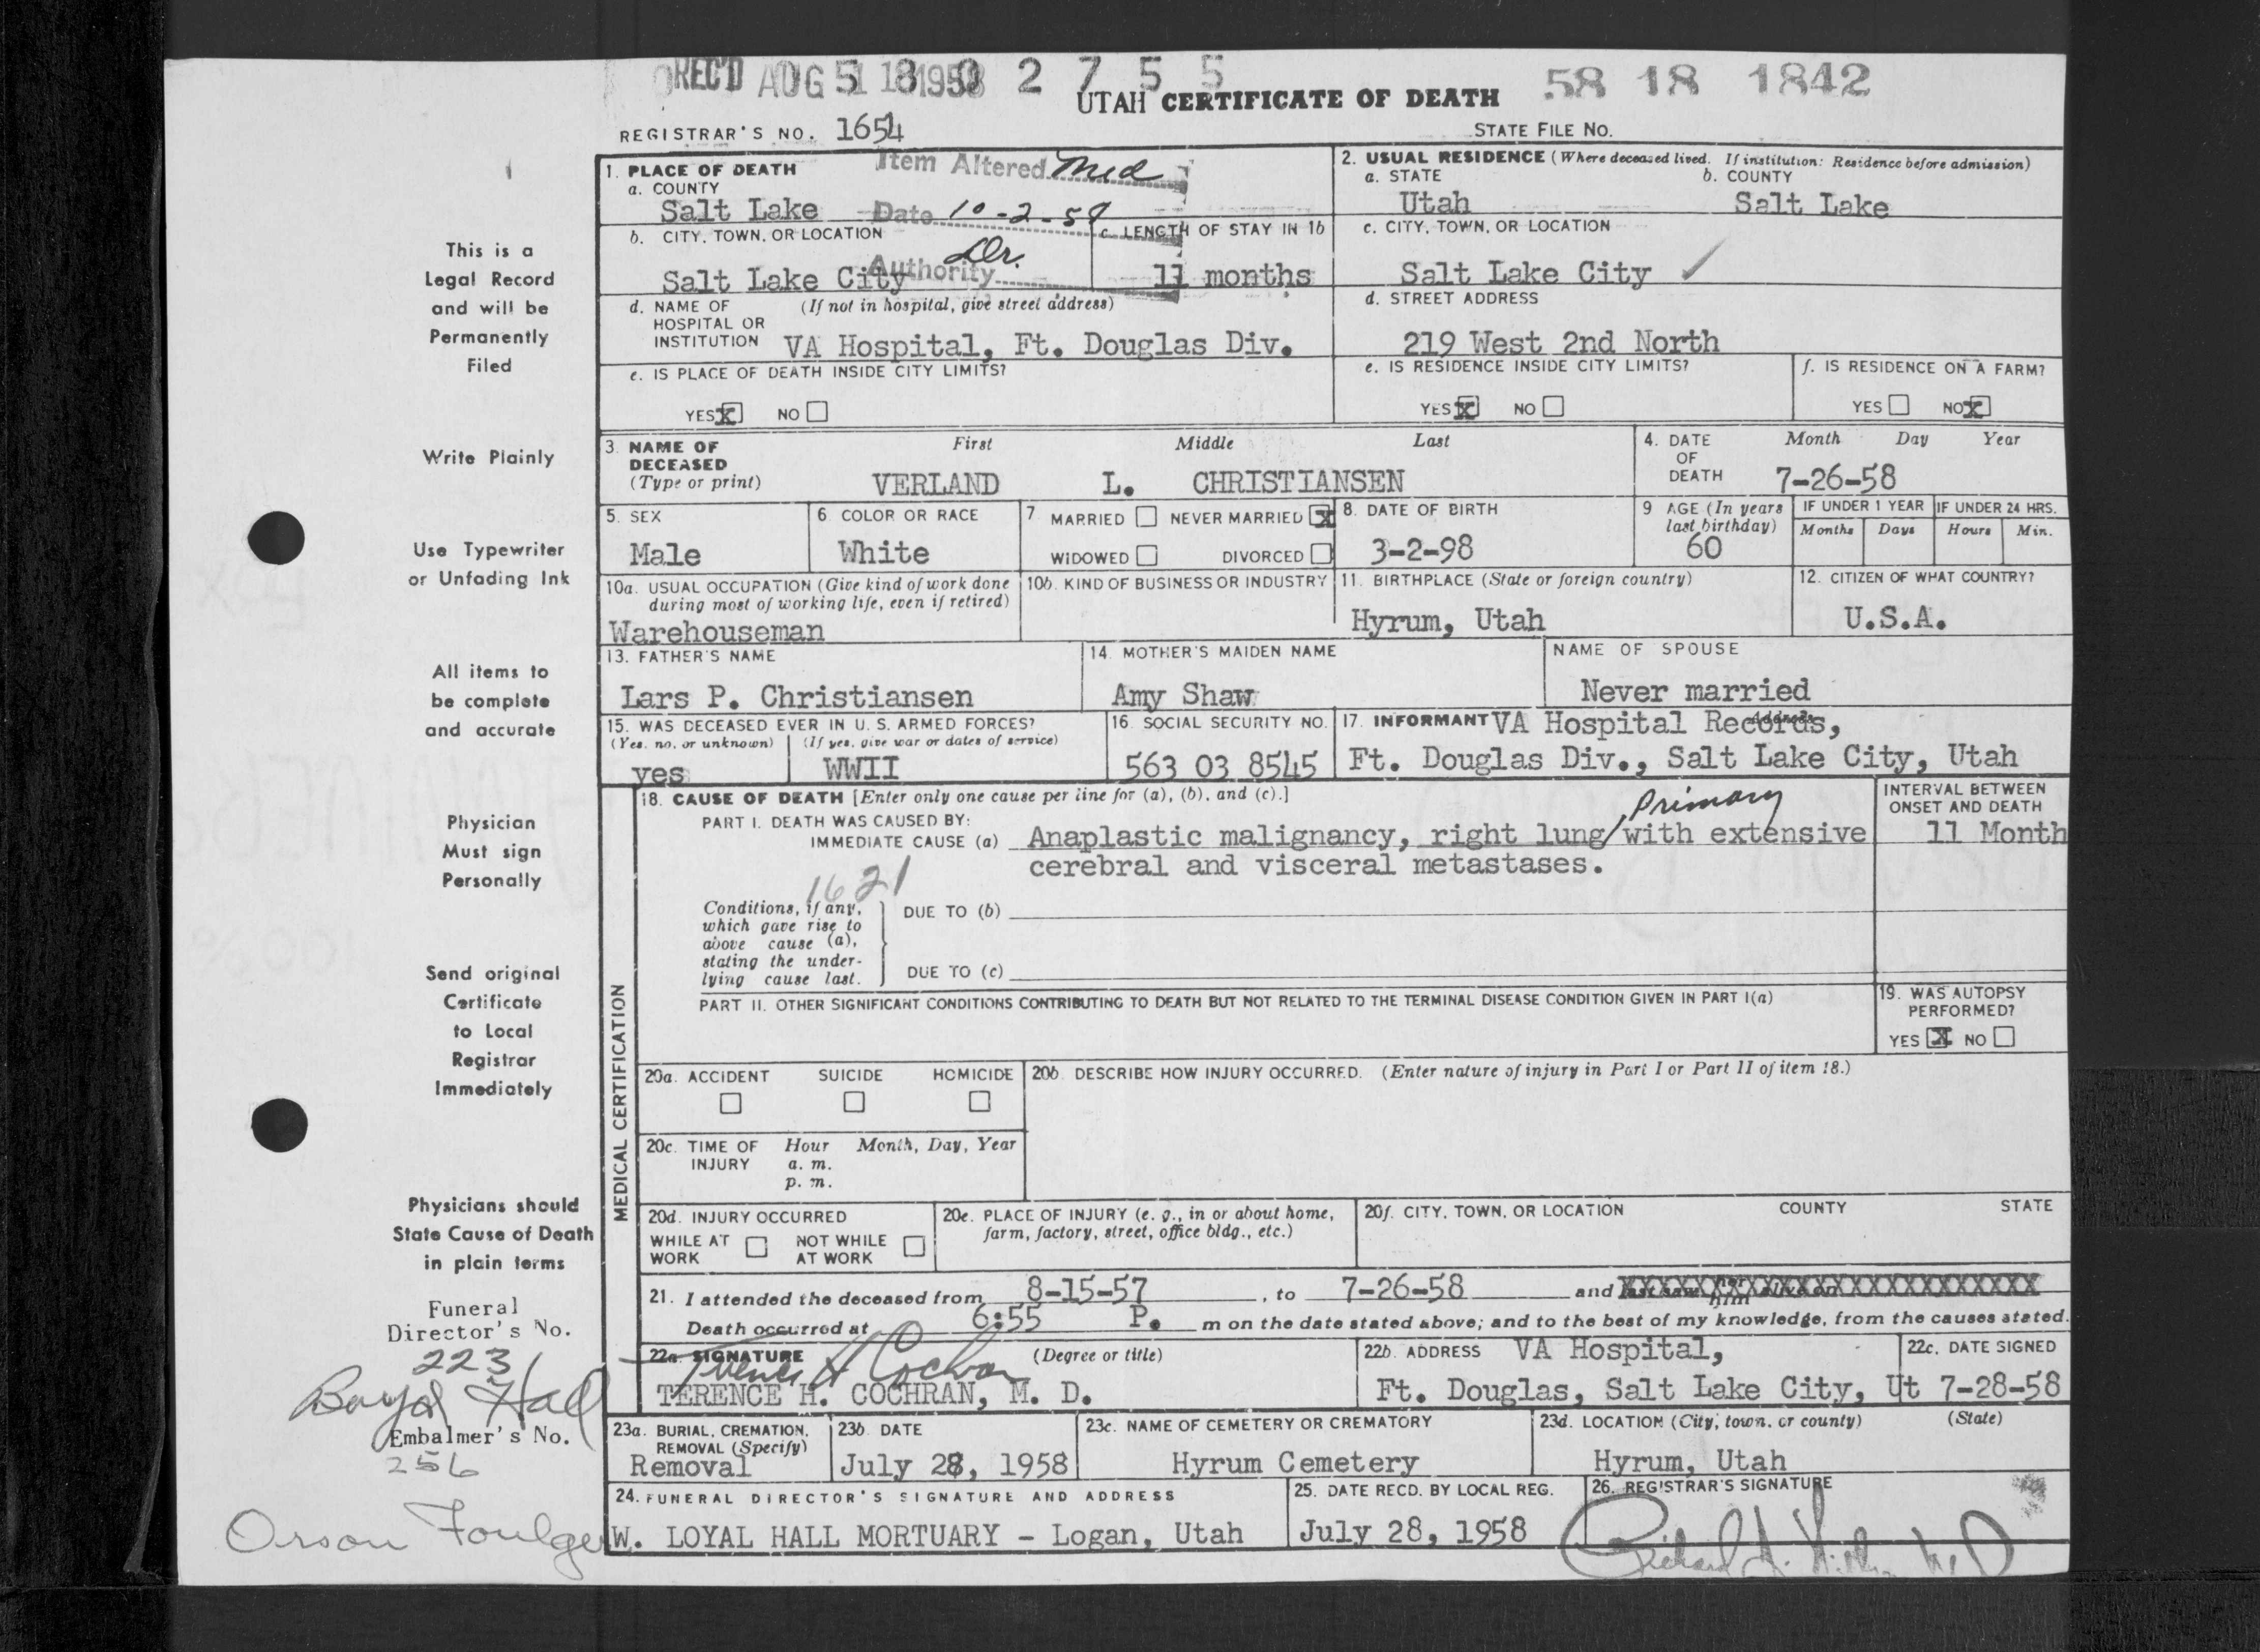 REC'D AUG 1 1958
5 18 0 2 7 5 5
58 18 1842
UTAH CERTIFICATE OF DEATH
REGISTRAR'S NO. 1654
STATE FILE NO.
1. PLACE OF DEATH
a. COUNTY
Salt Lake
Item Altered Med
Date 10-2-58
Authority Dr.
b. CITY, TOWN, OR LOCATION
Salt Lake City
c. LENGTH OF STAY IN 1b
11 months
d. NAME OF (If not in hospital, give street address)
HOSPITAL OR
INSTITUTION VA Hospital, Ft. Douglas Div.
e. IS PLACE OF DEATH INSIDE CITY LIMITS?
YES X NO
2. USUAL RESIDENCE (Where deceased lived. If institution: Residence before admission)
a. STATE
Utah
b. COUNTY
Salt Lake
c. CITY, TOWN, OR LOCATION
Salt Lake City ✓
d. STREET ADDRESS
219 West 2nd North
e. IS RESIDENCE INSIDE CITY LIMITS?
YES X NO
f. IS RESIDENCE ON A FARM?
YES NO X
3. NAME OF DECEASED (Type or print)
First Middle Last
VERLAND L. CHRISTIANSEN
4. DATE OF DEATH
Month Day Year
7-26-58
5. SEX
Male
6. COLOR OR RACE
White
7 MARRIED NEVER MARRIED X
WIDOWED DIVORCED
8. DATE OF BIRTH
3-2-98
9 AGE (In years last birthday)
60
IF UNDER 1 YEAR
Months Days
IF UNDER 24 HRS.
Hours Min.
10a. USUAL OCCUPATION (Give kind of work done
during most of working life, even if retired)
Warehouseman
10b. KIND OF BUSINESS OR INDUSTRY
11. BIRTHPLACE (State or foreign country)
Hyrum, Utah
12. CITIZEN OF WHAT COUNTRY?
U.S.A.
13. FATHER'S NAME
Lars P. Christiansen
14. MOTHER'S MAIDEN NAME
Amy Shaw
NAME OF SPOUSE
Never married
15. WAS DECEASED EVER IN U. S. ARMED FORCES?
(Yes, no, or unknown) (If yes, give war or dates of service)
yes WWII
16. SOCIAL SECURITY NO.
563 03 8545
17. INFORMANT Address
VA Hospital Records,
Ft. Douglas Div., Salt Lake City, Utah
MEDICAL CERTIFICATION
18. CAUSE OF DEATH [Enter only one cause per line for (a), (b), and (c).]
PART I. DEATH WAS CAUSED BY:
Primary
IMMEDIATE CAUSE (a) Anaplastic malignancy, right lung/with extensive
cerebral and visceral metastases.
1621
Conditions, if any,
which gave rise to
above cause (a),
stating the under-
lying cause last.
DUE TO (b)
DUE TO (c)
INTERVAL BETWEEN
ONSET AND DEATH
11 Month
PART II. OTHER SIGNIFICANT CONDITIONS CONTRIBUTING TO DEATH BUT NOT RELATED TO THE TERMINAL DISEASE CONDITION GIVEN IN PART I(a)
19. WAS AUTOPSY
PERFORMED?
YES X NO
20a. ACCIDENT SUICIDE HOMICIDE
20b. DESCRIBE HOW INJURY OCCURRED. (Enter nature of injury in Part I or Part II of item 18.)
20c. TIME OF INJURY
Hour Month, Day, Year
a. m.
p. m.
20d. INJURY OCCURRED
WHILE AT WORK NOT WHILE AT WORK
20e. PLACE OF INJURY (e. g., in or about home,
farm, factory, street, office bldg., etc.)
20f. CITY, TOWN, OR LOCATION COUNTY STATE
21. I attended the deceased from 8-15-57, to 7-26-58 and last saw her him alive on
Death occurred at 6:55 P. m on the date stated above; and to the best of my knowledge, from the causes stated.
22a. SIGNATURE (Degree or title)
Terence H Cochran
TERENCE H. COCHRAN, M. D.
22b. ADDRESS VA Hospital,
Ft. Douglas, Salt Lake City, Ut
22c. DATE SIGNED
7-28-58
23a. BURIAL, CREMATION,
REMOVAL (Specify)
Removal
23b. DATE
July 28, 1958
23c. NAME OF CEMETERY OR CREMATORY
Hyrum Cemetery
23d. LOCATION (City, town, or county) (State)
Hyrum, Utah
24. FUNERAL DIRECTOR'S SIGNATURE AND ADDRESS
W. LOYAL HALL MORTUARY - Logan, Utah
25. DATE RECD. BY LOCAL REG.
July 28, 1958
26. REGISTRAR'S SIGNATURE
This is a
Legal Record
and will be
Permanently
Filed
Write Plainly
Use Typewriter
or Unfading Ink
All items to
be complete
and accurate
Physician
Must sign
Personally
Send original
Certificate
to Local
Registrar
Immediately
Physicians should
State Cause of Death
in plain terms
Funeral
Director's No.
223
Boyd Hall
Embalmer's No.
256
Orson Foulger